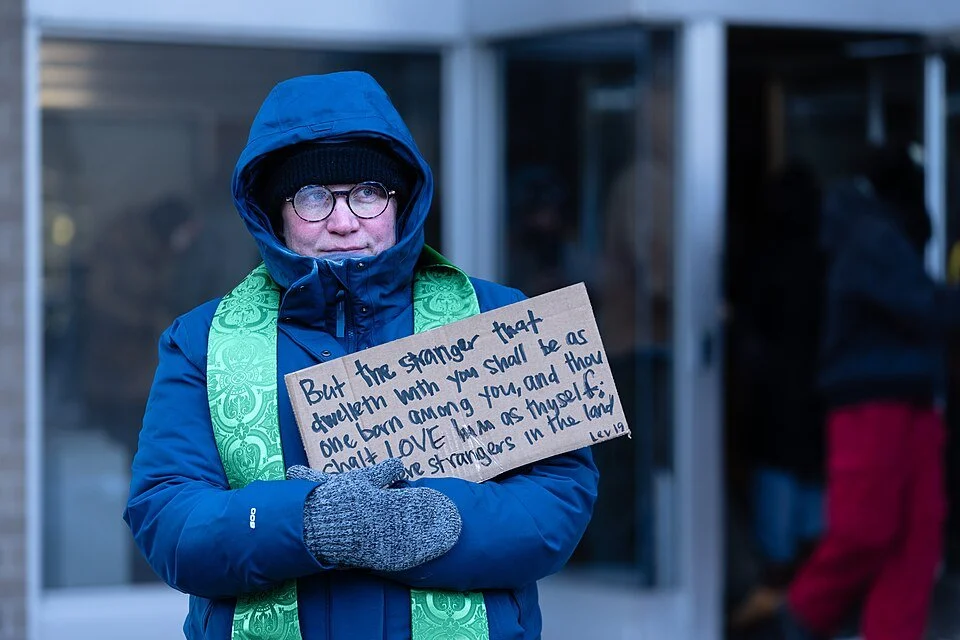 But the stranger that
dwelleth with you shall be as
one born among you, and thou
shalt LOVE him as thyself:
strangers in the land
Lev 19